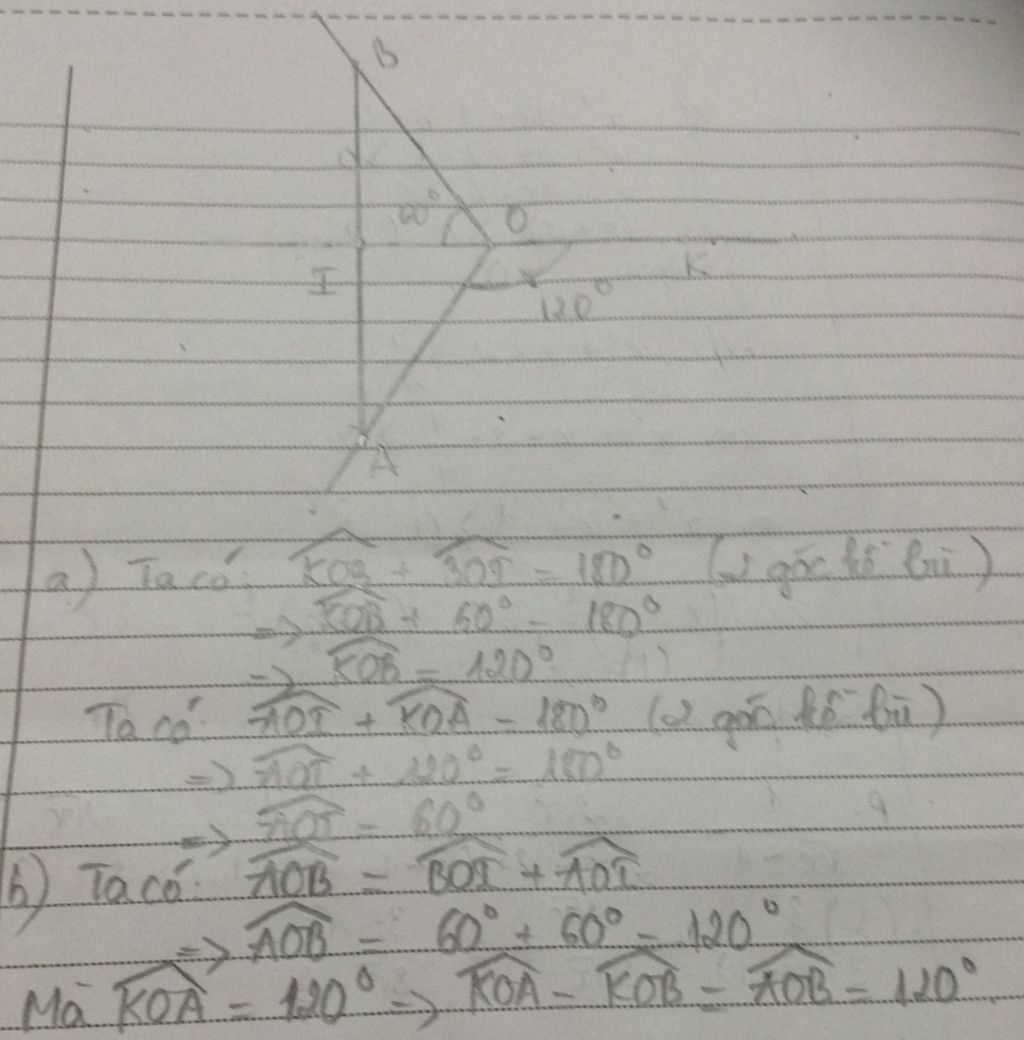 B
60°
O
I
K
120°
A
a) Ta có: KOB + BOI = 180° (2 góc kề bù)
=> KOB + 60° = 180°
=> KOB = 120° (1)
Ta có: AOI + KOA = 180° (2 góc kề bù)
=> AOI + 120° = 180°
=> AOI = 60°
b) Ta có: AOB = BOI + AOI
=> AOB = 60° + 60° = 120°
Mà KOA = 120° => KOA = KOB = AOB = 120°